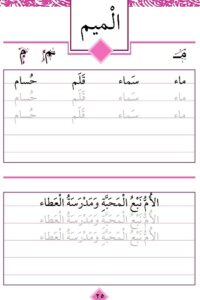 الْميم
ماء سَماء قَلَم حُسام
ماء سَماء قَلَم حُسام
ماء سَماء قَلَم حُسام
الأُمُّ نَبْعُ الْمَحَبَّةِ وَمَدْرَسَةُ الْعَطاء
الأُمُّ نَبْعُ الْمَحَبَّةِ وَمَدْرَسَةُ الْعَطاء
الأُمُّ نَبْعُ الْمَحَبَّةِ وَمَدْرَسَةُ الْعَطاء
٢٥